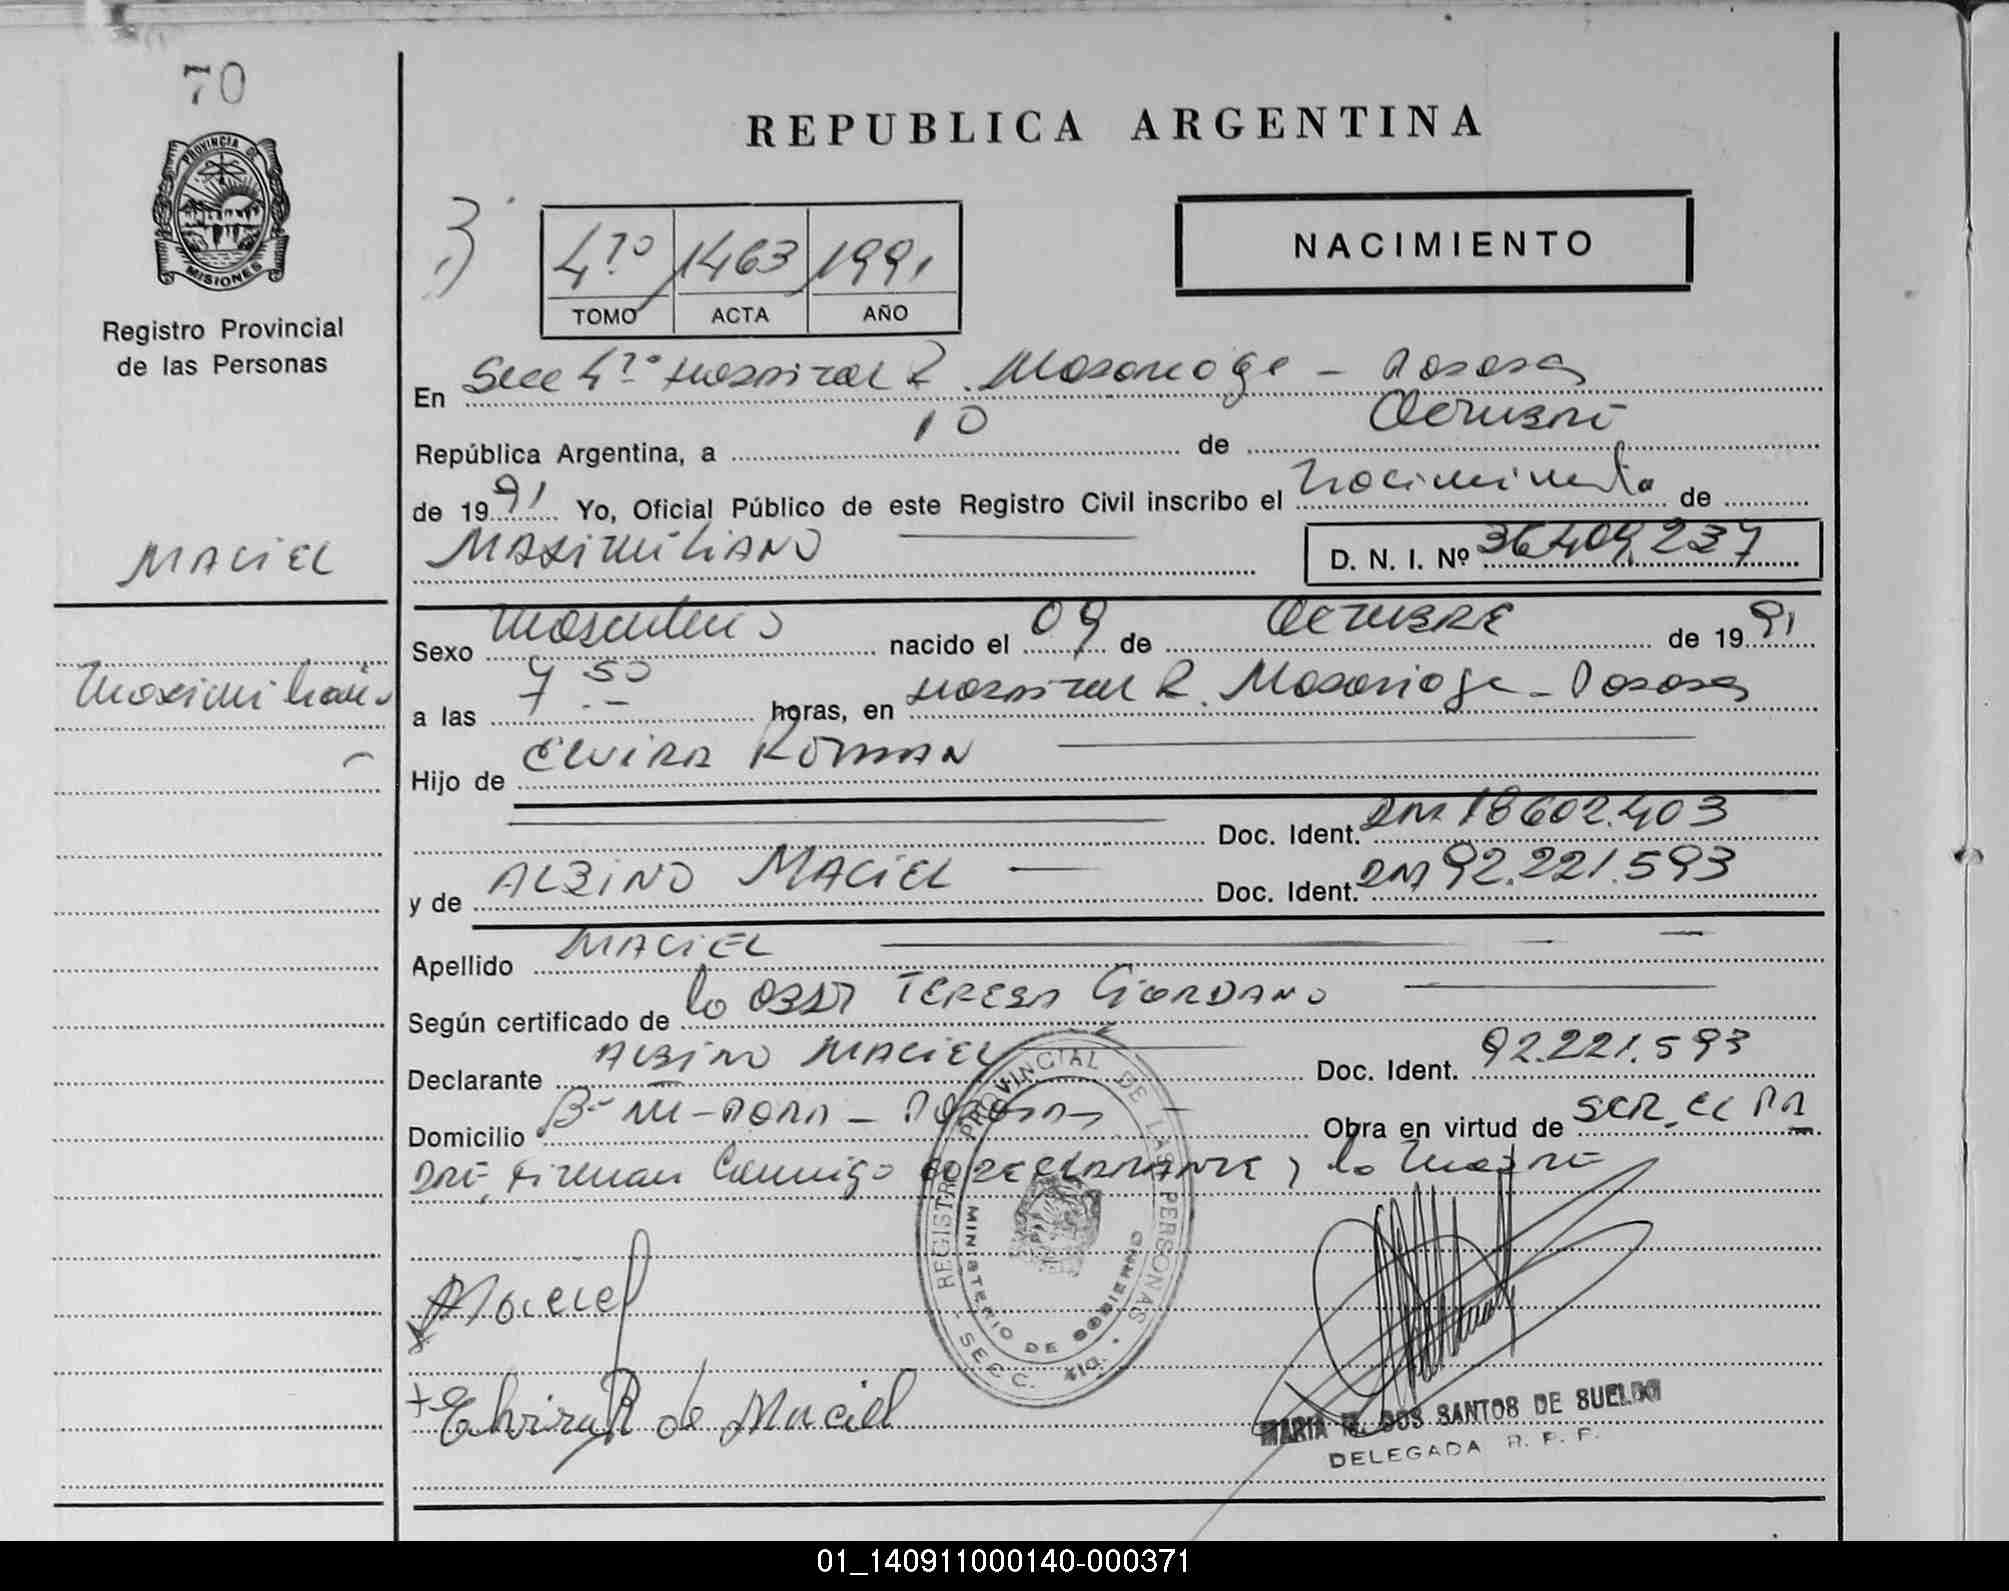 70
PROVINCIA DE
MISIONES
Registro Provincial
de las Personas
MACIEL
Maximiliano
REPUBLICA ARGENTINA
4to 1463 1991
TOMO ACTA AÑO
NACIMIENTO
En Secc 4to Hospital R. Madariaga - Posadas
República Argentina, a 10 de Octubre
de 1991 Yo, Oficial Público de este Registro Civil inscribo el Nacimiento de
MAXIMILIANO D. N. I. Nº 36.409.237
Sexo Masculino nacido el 09 de OCTUBRE de 1991
a las 7 50 horas, en Hospital R. Madariaga - Posadas
Hijo de ELVIRA ROMAN
Doc. Ident. DNI 18602.403
y de ALBINO MACIEL Doc. Ident. DNI 92.221.593
Apellido MACIEL
Según certificado de la OBST TERESA GIORDANO
Declarante ALBINO MACIEL Doc. Ident. 92.221.593
Domicilio Bº - POSADAS Obra en virtud de SER EL PA
DRE, Firman Conmigo EL DECLARANTE y la Madre
REGISTRO PROVINCIAL DE LAS PERSONAS
MINISTERIO DE GOBIERNO
SECC. 4ta.
Maciel
Elvira R de Maciel
MARIA DOS SANTOS DE SUELDO
DELEGADA R. P. P.
01_140911000140-000371